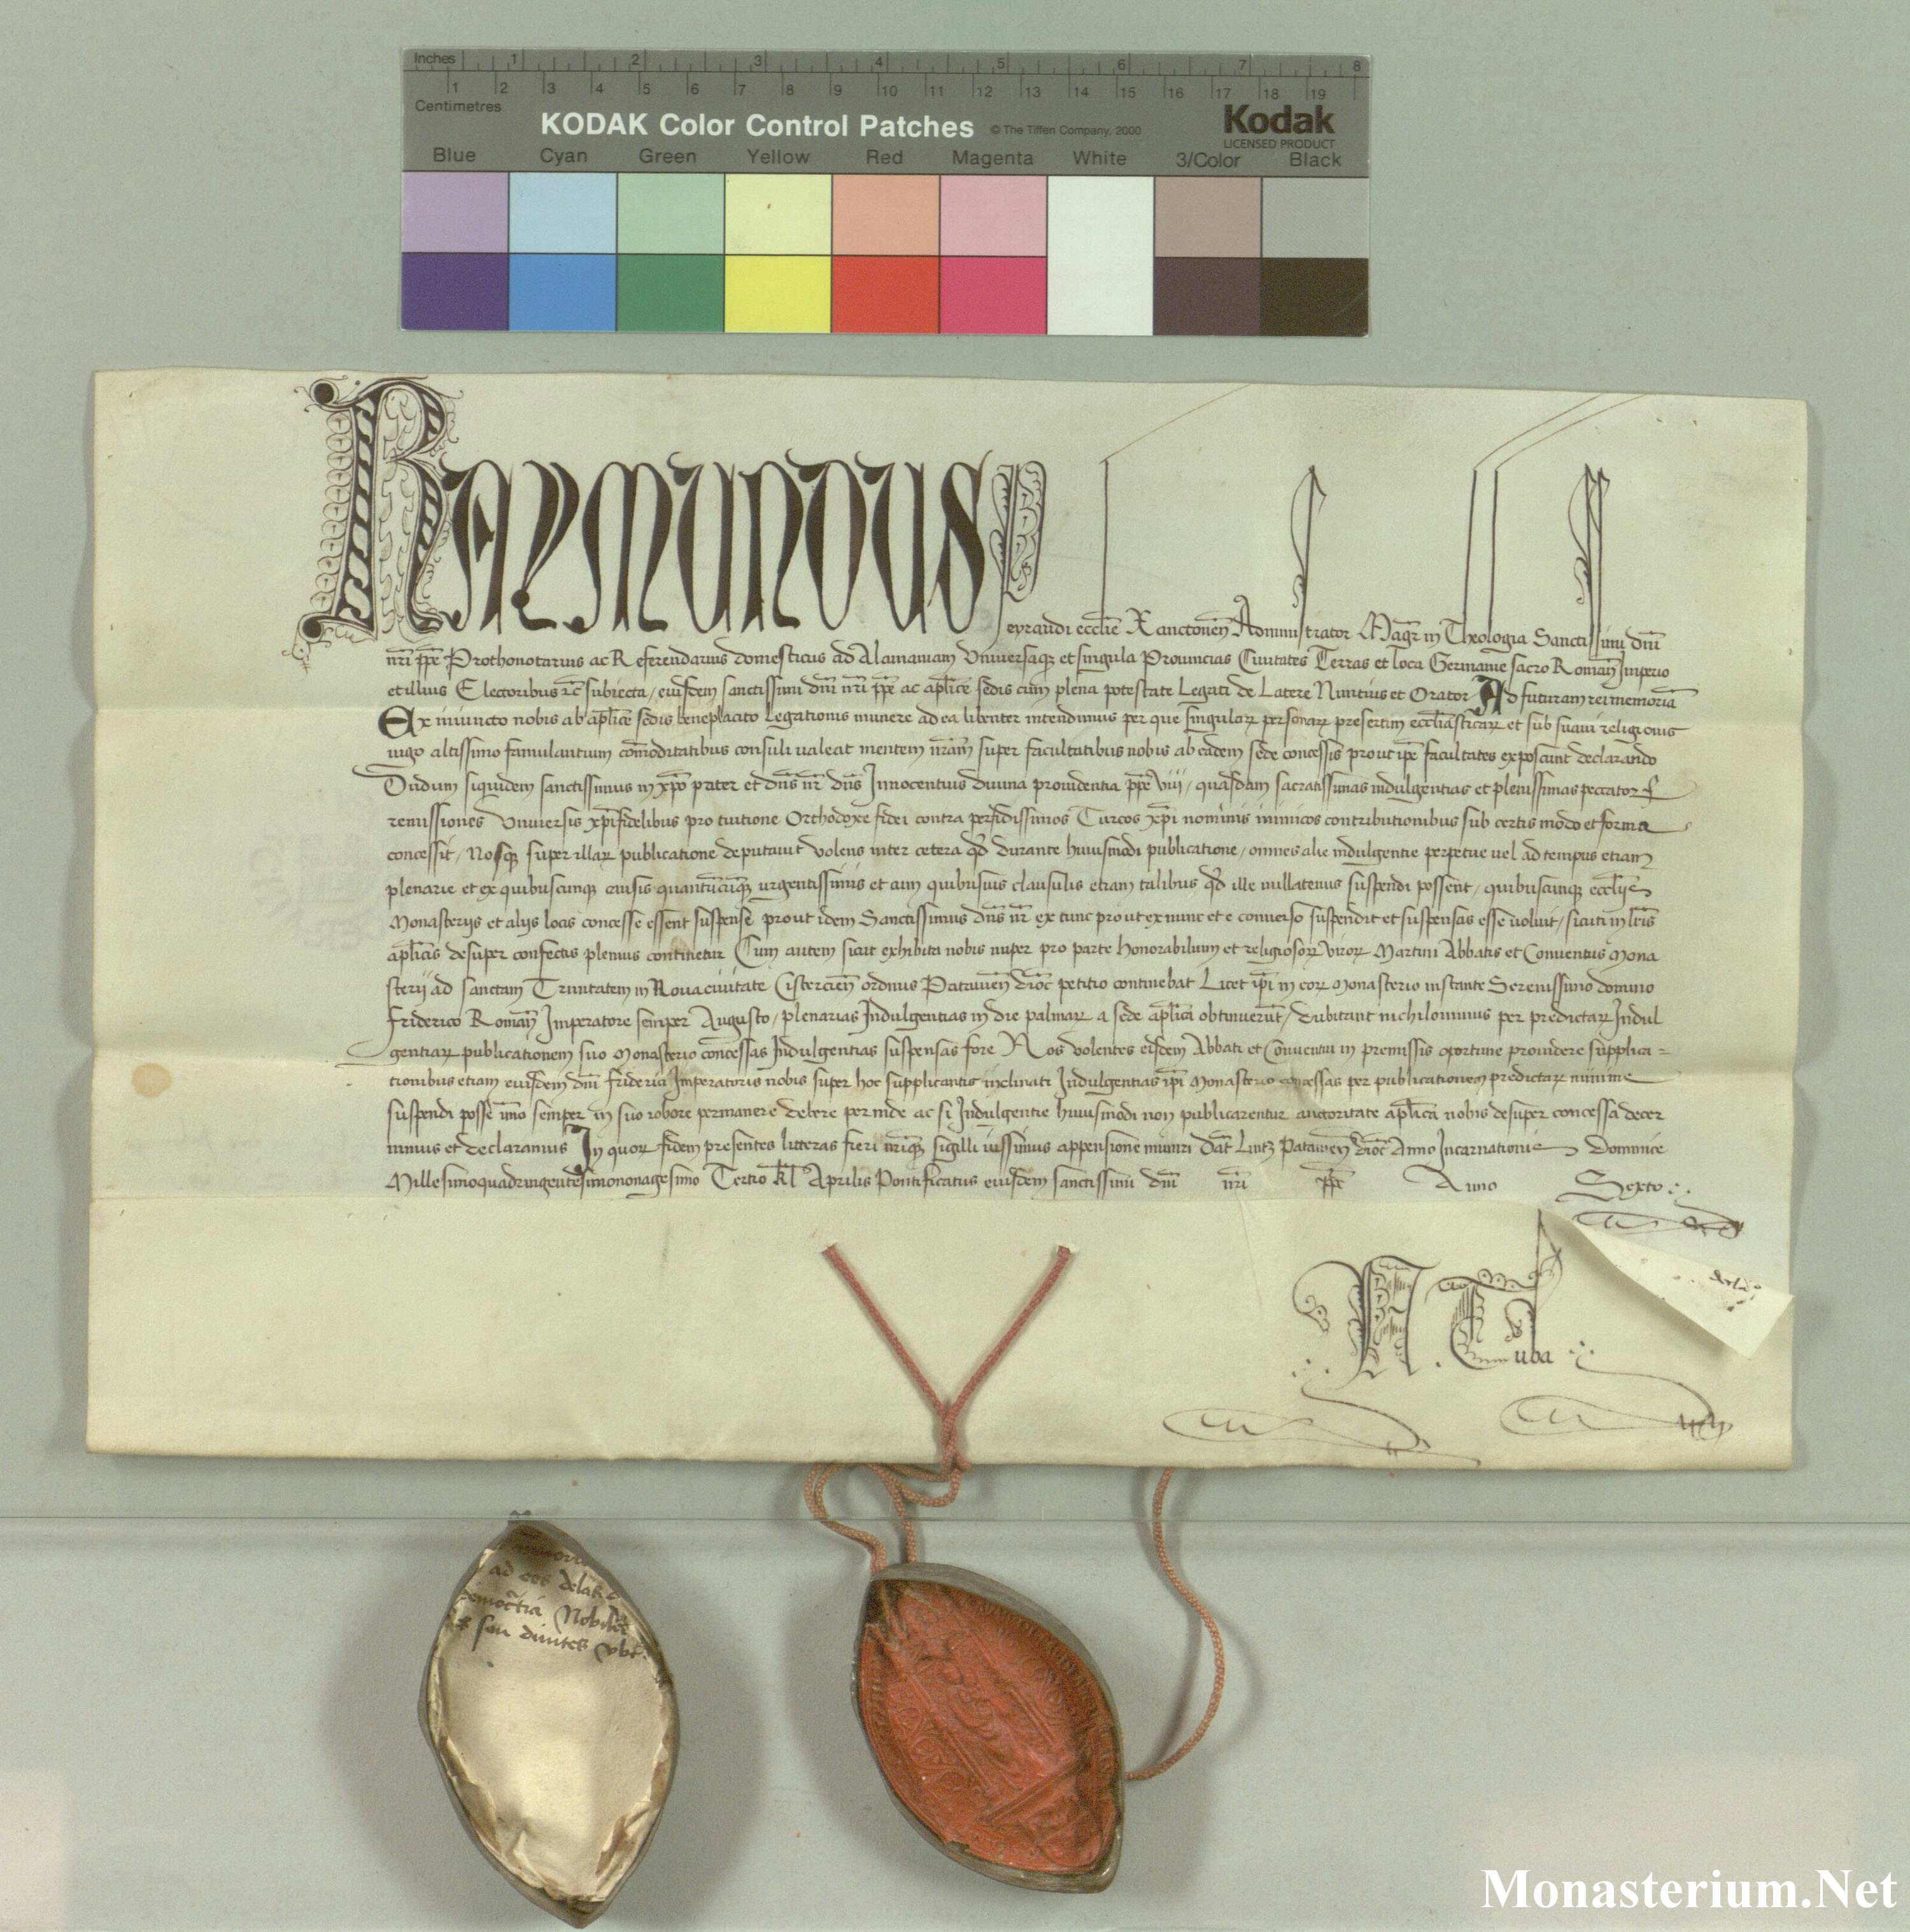 Inches 1 2 3 4 5 6 7 8
1 2 3 4 5 6 7 8 9 10 11 12 13 14 15 16 17 18 19
Centimetres
KODAK Color Control Patches © The Tiffen Company, 2000 Kodak
LICENSED PRODUCT
Blue Cyan Green Yellow Red Magenta White 3/Color Black
RAYMUNDUS Peyraudi eccl̄ie Xanctonen̄ Administrator Magr̄ in Theologia Sanctissimi dn̄i
nr̄i pp̄e Prothonotarius ac Referendarius domesticus ad Alamaniam Universasqꝫ et singula Provincias Civitates Terras et loca Germanie sacro Roman̄ Imperio
et illius Electoribus ꝛc̄ subiecta / eiusdem sanctissimi dn̄i nr̄i pp̄e ac apl̄ice sedis cum plena potestate Legati de Latere Nuntius et Orator Ad futuram rei memoriā
Ex iniuncto nobis ab apl̄ice sedis beneplacito legationis munere ad ea libenter intendimus per que singularꝝ personarꝝ presertim eccl̄iasticarꝝ et sub suavi religionis
iugo altissimo famulantium com̄oditatibus consuli valeat mentem nr̄am super facultatibus nobis ab eadem sede concessis prout ip̄e facultates exposcunt declarando
Dudum siquidem sanctissimus in xp̄o pater et dn̄s nr̄ dn̄s Innocentius divina providentia pp̄e viii / quasdam sacratissimas indulgentias et plenissimas peccatorꝝ
remissiones Universis xp̄ifidelibus pro tuitione Orthodoxe fidei contra perfidissimos Turcos xp̄i nominis inimicos contributionibus sub certis modo et forma
concessit / Nosqꝫ super illarꝝ publicatione deputavit volens inter cetera qd̄ durante huiusmodi publicatione / omnes alie indulgentie perpetue vel ad tempus etiam
plenarie et ex quibuscunqꝫ causis quantūcūqꝫ urgentissimis et cum quibusvis clausulis etiam talibus qd̄ ille nullatenus suspendi possent / quibuscunqꝫ eccl̄ijs
Monasterijs et alijs locis concesse essent suspense prout idem Sanctissimus dn̄s nr̄ ex tunc prout ex nunc et e converso suspendit et suspensas esse voluit / sicuti in lr̄is
apl̄icis desuper confectis plenius continetur Cum autem sicut exhibita nobis nuper pro parte honorabilium et religiosorꝝ virorꝝ Martini Abbatis et Conventus Mona
sterij ad sanctam Trinitatem in Nova civitate Cistercien̄ ordinis Patavien̄ dioc̄ petitio continebat Licet ip̄i in eorꝝ Monasterio instante Serenissimo domino
friderico Roman̄ Imperatore semper Augusto / plenarias Indulgentias in die palmarꝝ a sede apl̄ica obtinuerūt / dubitant nichilominus per predictarꝝ Indul
gentiarꝝ publicationem suo Monasterio concessas Indulgentias suspensas fore Nos volentes eisdem Abbati et Conventui in premissis oportune providere supplica =
tionibus etiam eiusdem dn̄i friderici Imperatoris nobis super hoc supplicantis inclinati Indulgentias ip̄i Monasterio concessas per publicationem predictarꝝ minime
suspendi posse ymo semper in suo robore permanere debere perinde ac si Indulgentie huiusmodi non publicarentur auctoritate apl̄ica nobis desuper concessa decer
nimus et declaramus In quorꝝ fidem presentes litteras fieri nr̄iqꝫ sigilli iussimus appensione muniri Dat̄ Lintz Patavien̄ dioc̄ Anno Incarnationis Dominice
Millesimoquadringentesimononagesimo Tertio kl̄ Aprilis Pontificatus eiusdem sanctissimi dn̄i nr̄i pp̄e Anno Sexto
N. Tuba
ad delat
Nobiles
seu divites
Monasterium.Net